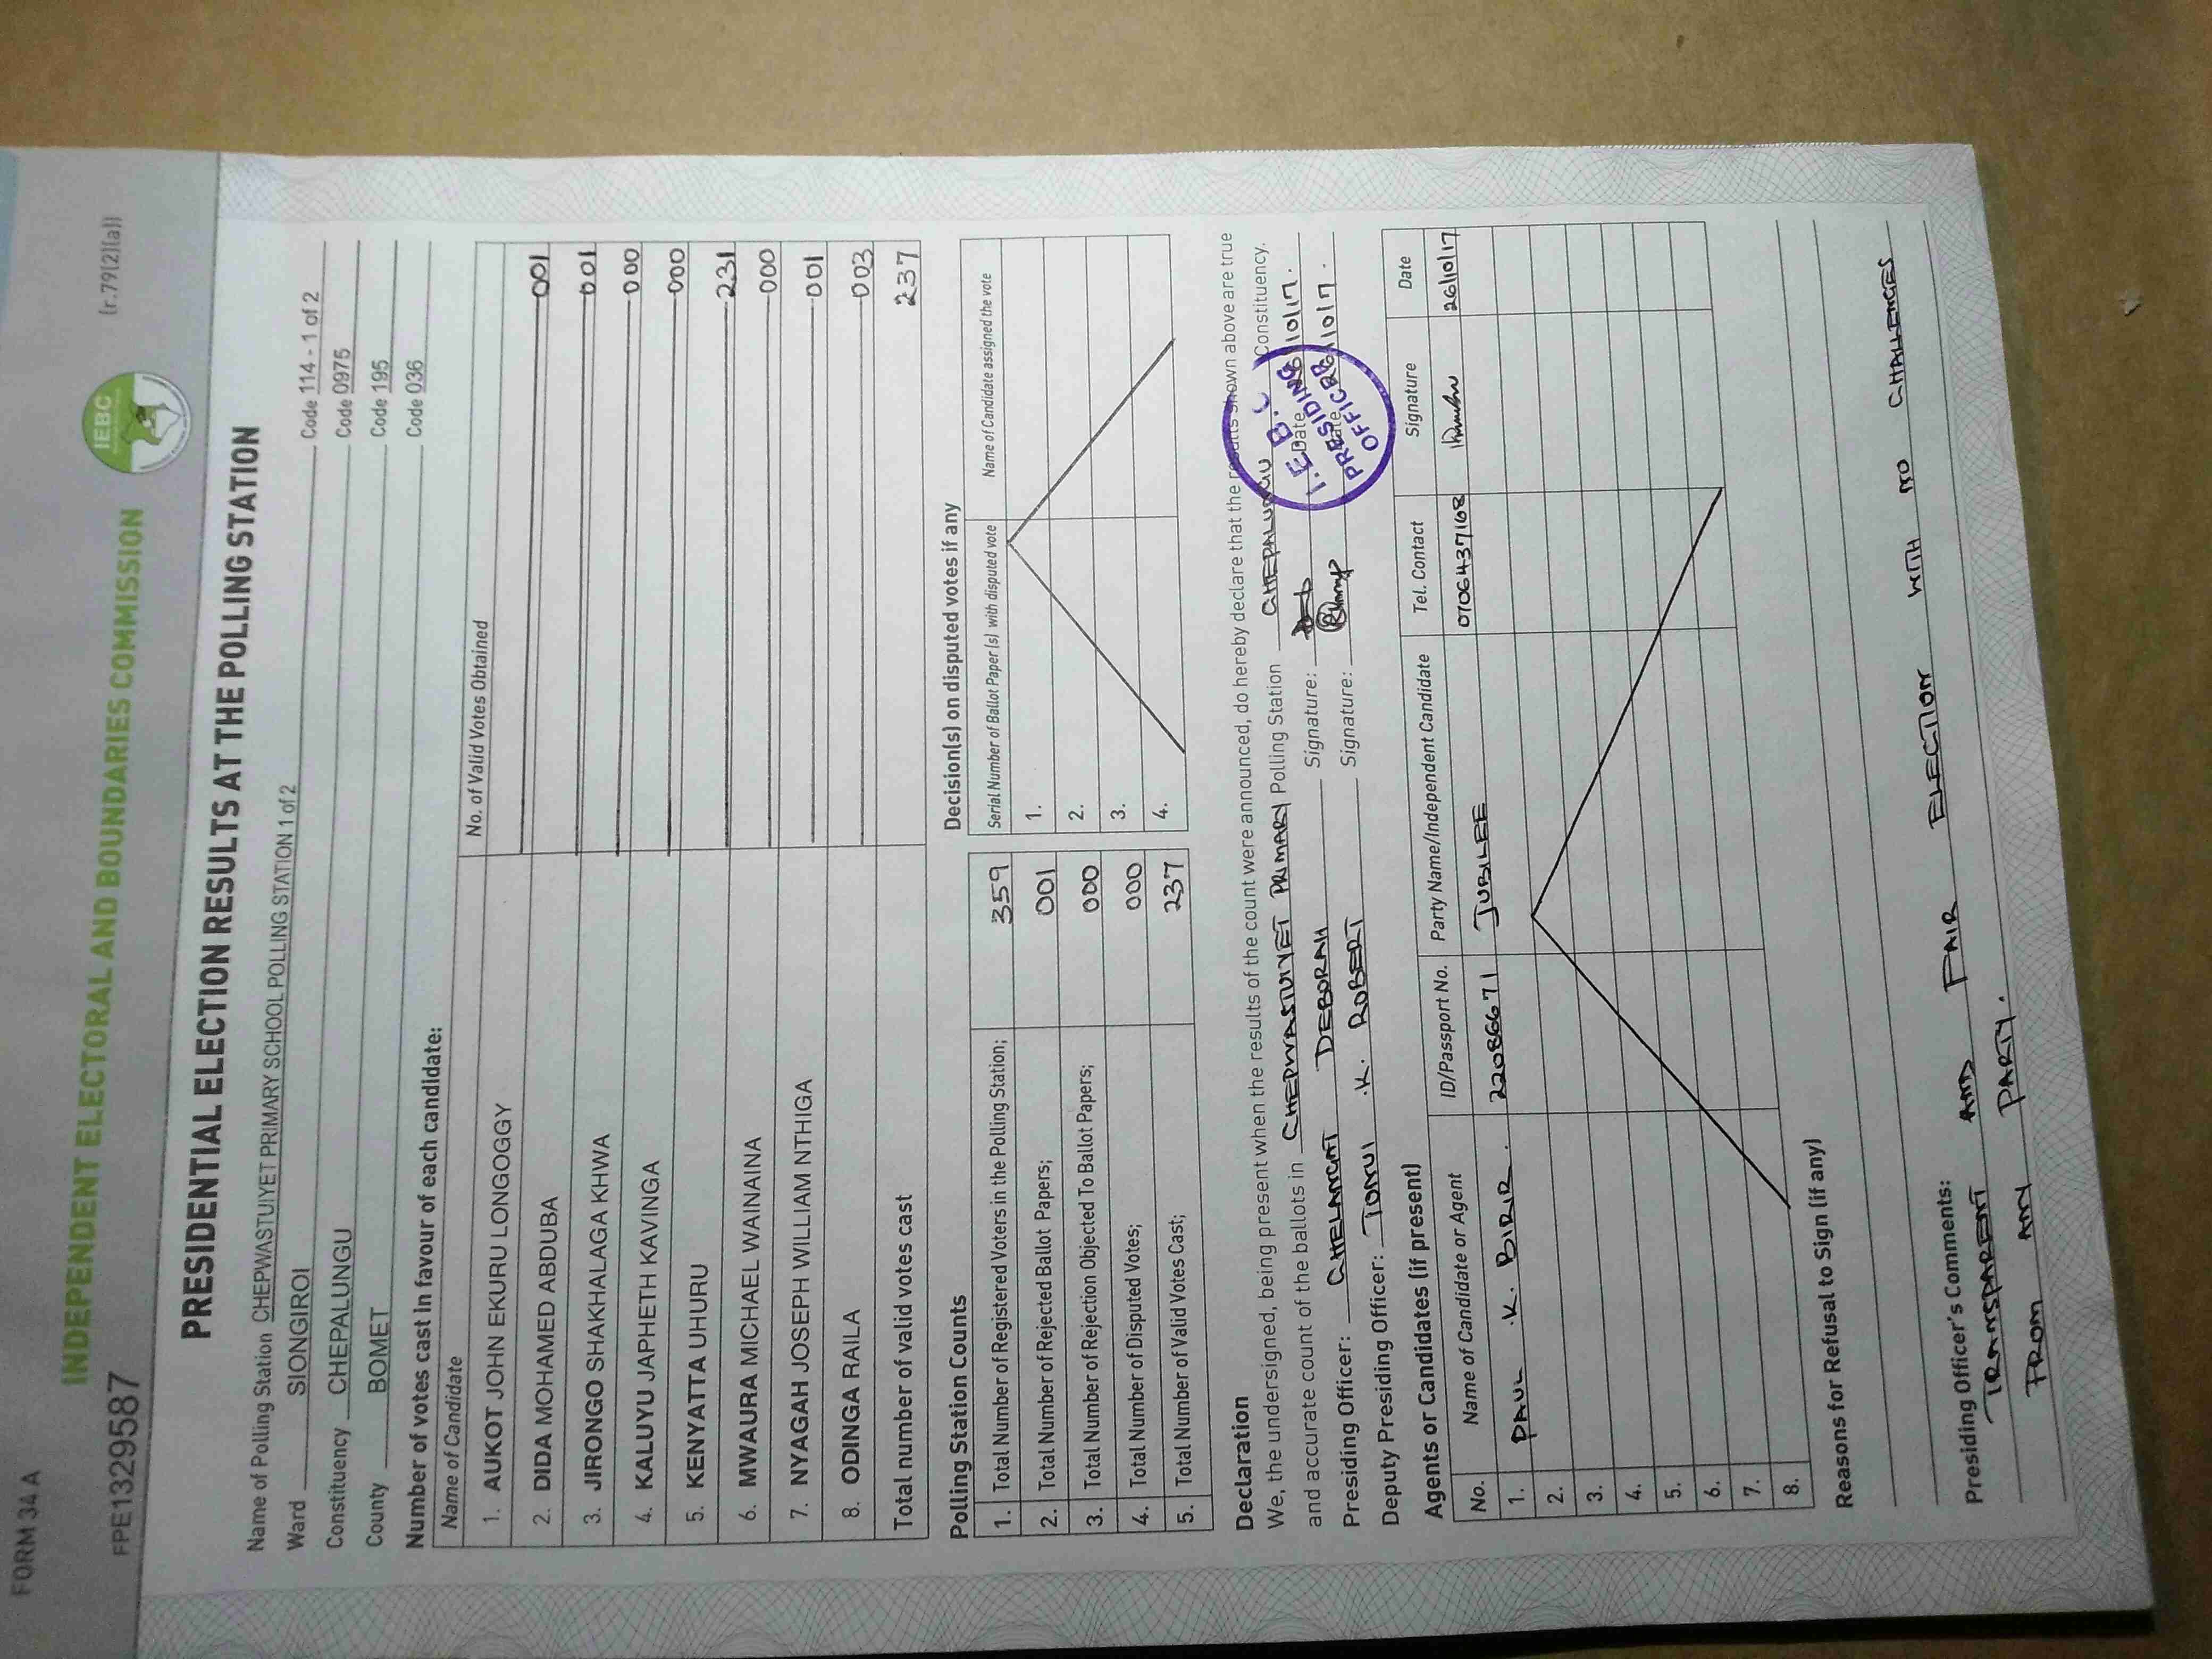 FORM 34 A
INDEPENDENT ELECTORAL AND BOUNDARIES COMMISSION
IEBC
(r.79(2)(a))
FPE1329587
PRESIDENTIAL ELECTION RESULTS AT THE POLLING STATION
Name of Polling Station CHEPWASTUIYET PRIMARY SCHOOL POLLING STATION 1 of 2 Code 114 - 1 of 2
Ward SIONGIROI Code 0975
Constituency CHEPALUNGU Code 195
County BOMET Code 036
Number of votes cast in favour of each candidate:
Name of Candidate No. of Valid Votes Obtained
1. AUKOT JOHN EKURU LONGOGGY 001
2. DIDA MOHAMED ABDUBA 001
3. JIRONGO SHAKHALAGA KHWA 000
4. KALUYU JAPHETH KAVINGA 000
5. KENYATTA UHURU 231
6. MWAURA MICHAEL WAINAINA 000
7. NYAGAH JOSEPH WILLIAM NTHIGA 001
8. ODINGA RAILA 003
Total number of valid votes cast 237
Polling Station Counts
1. Total Number of Registered Voters in the Polling Station; 359
2. Total Number of Rejected Ballot Papers; 001
3. Total Number of Rejection Objected To Ballot Papers; 000
4. Total Number of Disputed Votes; 000
5. Total Number of Valid Votes Cast; 237
Decision(s) on disputed votes if any
Serial Number of Ballot Paper (s) with disputed vote Name of Candidate assigned the vote
1.
2.
3.
4.
Declaration
We, the undersigned, being present when the results of the count were announced, do hereby declare that the results shown above are true
and accurate count of the ballots in CHEPWASTUIYET PRIMARY Polling Station CHEPALUNGU Constituency.
Presiding Officer: CHELANGAT DEBORAH Signature: Date 26/10/17.
Deputy Presiding Officer: TONUI .K. ROBERT Signature: Date 26/10/17.
I.E.B.C
PRESIDING
OFFICER
Agents or Candidates (if present)
No. Name of Candidate or Agent ID/Passport No. Party Name/Independent Candidate Tel. Contact Signature Date
1. PAUL .K. BIRIR. 22086671 JUBILEE 0706437168 26/10/17
2.
3.
4.
5.
6.
7.
8.
Reasons for Refusal to Sign (if any)
Presiding Officer's Comments:
TRANSPARENT AND FAIR ELECTION WITH NO CHALLENGES
FROM ANY PARTY.